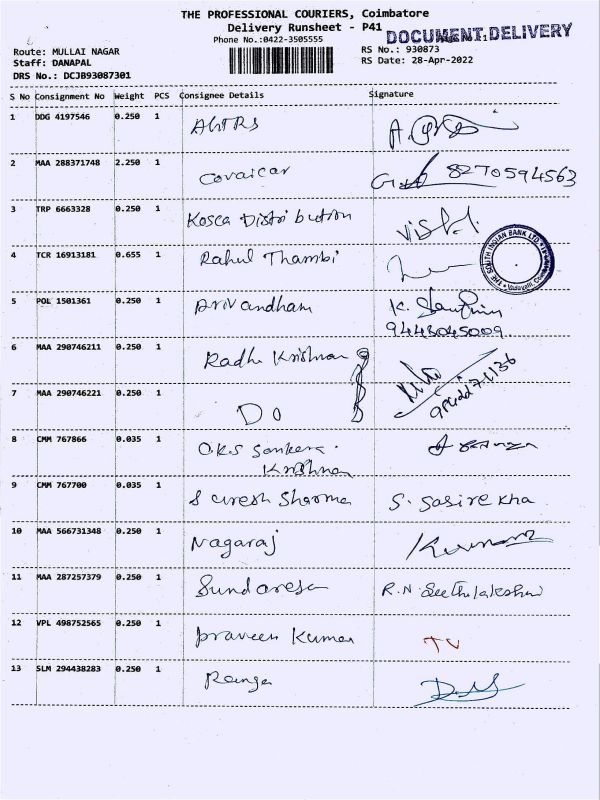 THE PROFESSIONAL COURIERS, Coimbatore
Delivery Runsheet - P41
DOCUMENT DELIVERY
Phone No.:0422-3505555
Route: MULLAI NAGAR
RS No.: 930873
Staff: DANAPAL
RS Date: 28-Apr-2022
DRS No.: DCJB93087301
S No Consignment No Weight PCS Consignee Details Signature
1 DDG 4197546 0.250 1
2 MAA 288371748 2.250 1 Covaicar 8270594563
3 TRP 6663328 0.250 1 Kosca Distribution
4 TCR 16913181 0.655 1 Rahul Thambi
THE SOUTH INDIAN BANK LTD.
5 POL 1501361 0.250 1 Arivandham K.
9443045009
6 MAA 290746211 0.250 1 Radha Krishnan
7 MAA 290746221 0.250 1 DO
8 CMM 767866 0.035 1 O.K.S Sankara
Krishnan
9 CMM 767700 0.035 1 Suresh Sharma S. Sasirekha
10 MAA 566731348 0.250 1 Nagaraj
11 MAA 287257379 0.250 1 Sundaresa R.N. Seethalakshmi
12 VPL 498752565 0.250 1 Praveen Kumar TV
13 SLM 294438283 0.250 1 Ranga